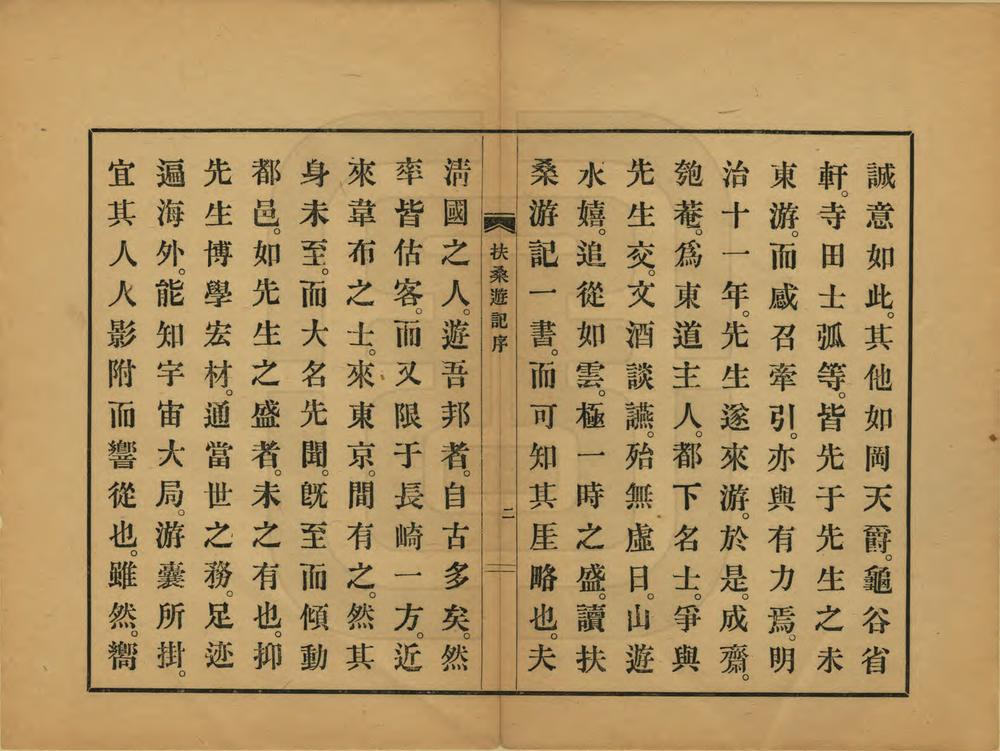 誠意如此。其他如岡天爵。龜谷省
軒。寺田士弧等。皆先于先生之未
東游。而感召牽引。亦與有力焉。明
治十一年。先生遂來游。於是。成齋。
匏菴。爲東道主人。都下名士。爭與
先生交。文酒談讌。殆無虛日。山遊
水嬉。追從如雲。極一時之盛。讀扶
桑游記一書。而可知其厓略也。夫
扶桑遊記序
二
淸國之人。遊吾邦者。自古多矣。然
率皆估客。而又限于長崎一方。近
來韋布之士。來東京。間有之。然其
身未至。而大名先聞。旣至而傾動
都邑。如先生之盛者。未之有也。抑
先生博學宏材。通當世之務。足迹
遍海外。能知宇宙大局。游囊所掛。
宜其人人影附而響從也。雖然。嚮